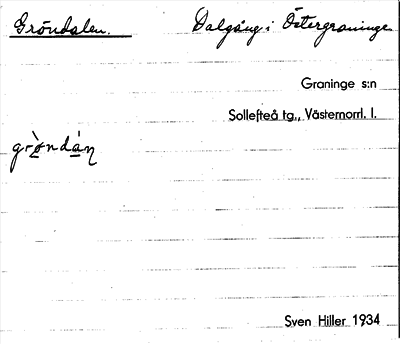 Gröndalen. Dalgång i Östergraninge
Graninge s:n
Sollefteå tg., Västernorrl. l.
grò̱ndá̱ŋ
Sven Hiller 1934